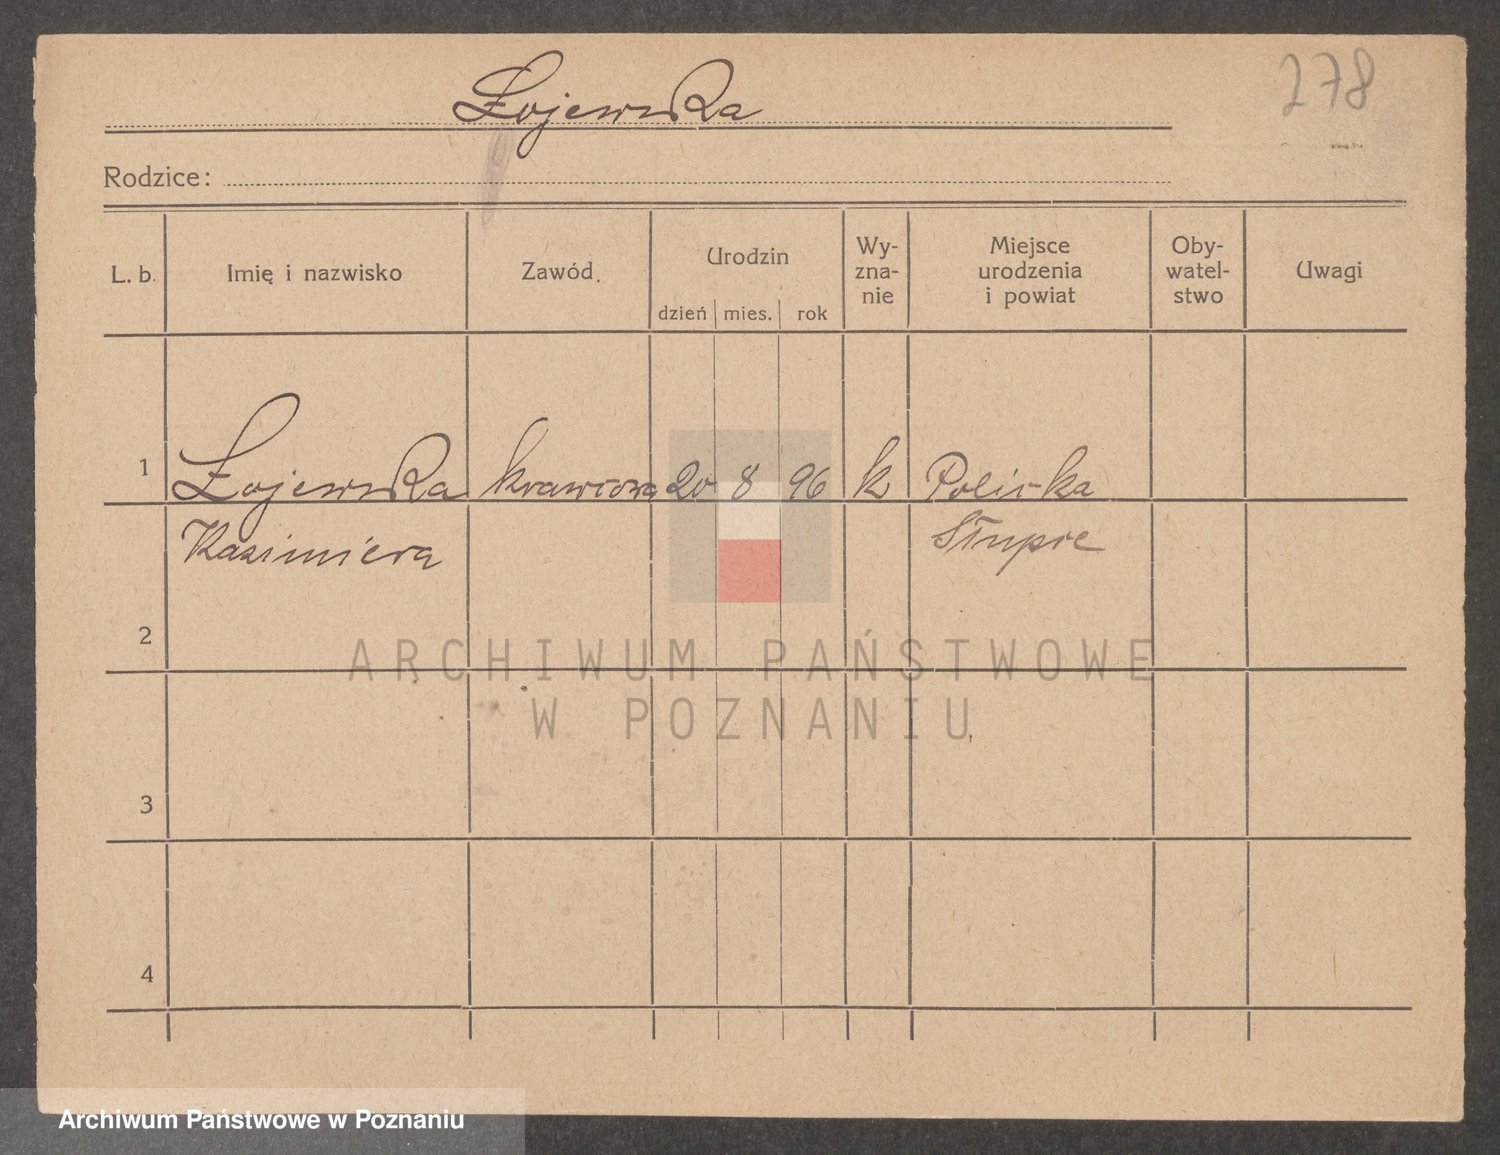 278
Łojewska
Rodzice:
L. b. Imię i nazwisko Zawód. Urodzin dzień mies. rok Wy-zna-nie Miejsce urodzenia i powiat Oby-watel-stwo Uwagi
1 Łojewska krawcowa 20 8 96 k
Kazimiera
2
3
4
ARCHIWUM PAŃSTWOWE
W POZNANIU
Archiwum Państwowe w Poznaniu